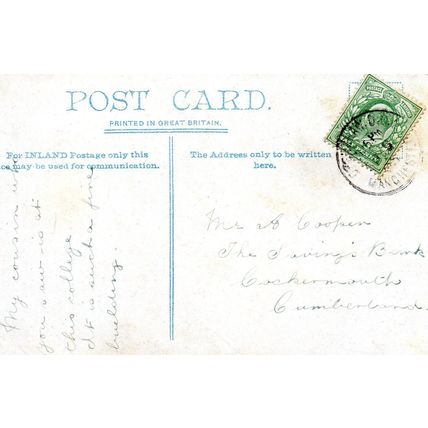 POST CARD.
PRINTED IN GREAT BRITAIN.
For INLAND Postage only this
ce may be used for communication.
The Address only to be written
here.
My cousin who
you saw is at
this college
It is such a fine
building.
Mr A Cooper
The Savings Bank
Cockermouth
Cumberland.